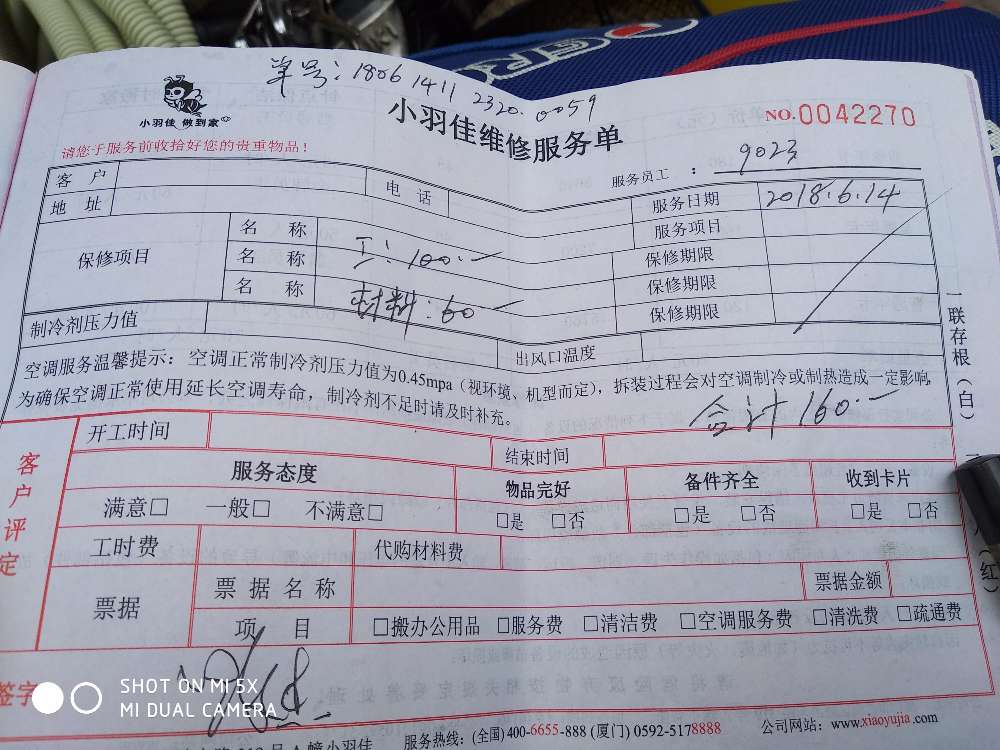 单号：1806 1411 2320.0059
小羽佳 做到家
小羽佳维修服务单
NO.0042270
请您于服务前收拾好您的贵重物品！
服务员工：9023
客户 电话 服务日期 2018.6.14
地址 服务项目
保修项目 名称 保修期限
名称 工：100.一 保修期限
名称 材料：60一 保修期限
制冷剂压力值 出风口温度
空调服务温馨提示：空调正常制冷剂压力值为0.45mpa（视环境、机型而定），拆装过程会对空调制冷或制热造成一定影响，
为确保空调正常使用延长空调寿命，制冷剂不足时请及时补充。
合计160.一
一联存根（白）
（红）
客户评定
开工时间 结束时间
服务态度 物品完好 备件齐全 收到卡片
满意□ 一般□ 不满意□ □是 □否 □是 □否 □是 □否
工时费 代购材料费
票据 票据名称 票据金额
项目 □搬办公用品 □服务费 □清洁费 □空调服务费 □清洗费 □疏通费
签字
SHOT ON MI 5X
MI DUAL CAMERA
幢小羽佳 服务热线：(全国)400-6655-888 (厦门) 0592-5178888 公司网站：www.xiaoyujia.com